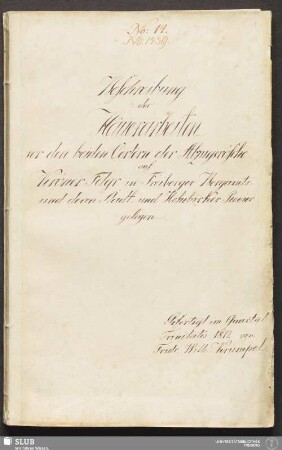 No: 11.
Beschreibung
der
Häuerarbeiten
vor den beiden Oertern der Abzugrösche
auf
in Freiberger Bergamts-
und deren Stadt und Hohebirker Revier
gelegen
Gefertigt im Quartal
Trinitatis 1812 von
SLUB
Wir führen Wissen.
UNIVERSITÄTSBIBLIOTHEK
FREIBERG